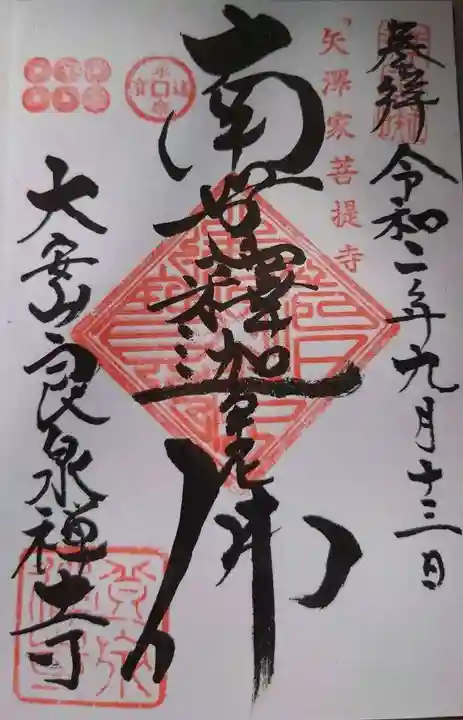 奉拝 令和二年九月十三日
矢澤家菩提寺
南無釋迦牟尼佛
大安山良泉禅寺